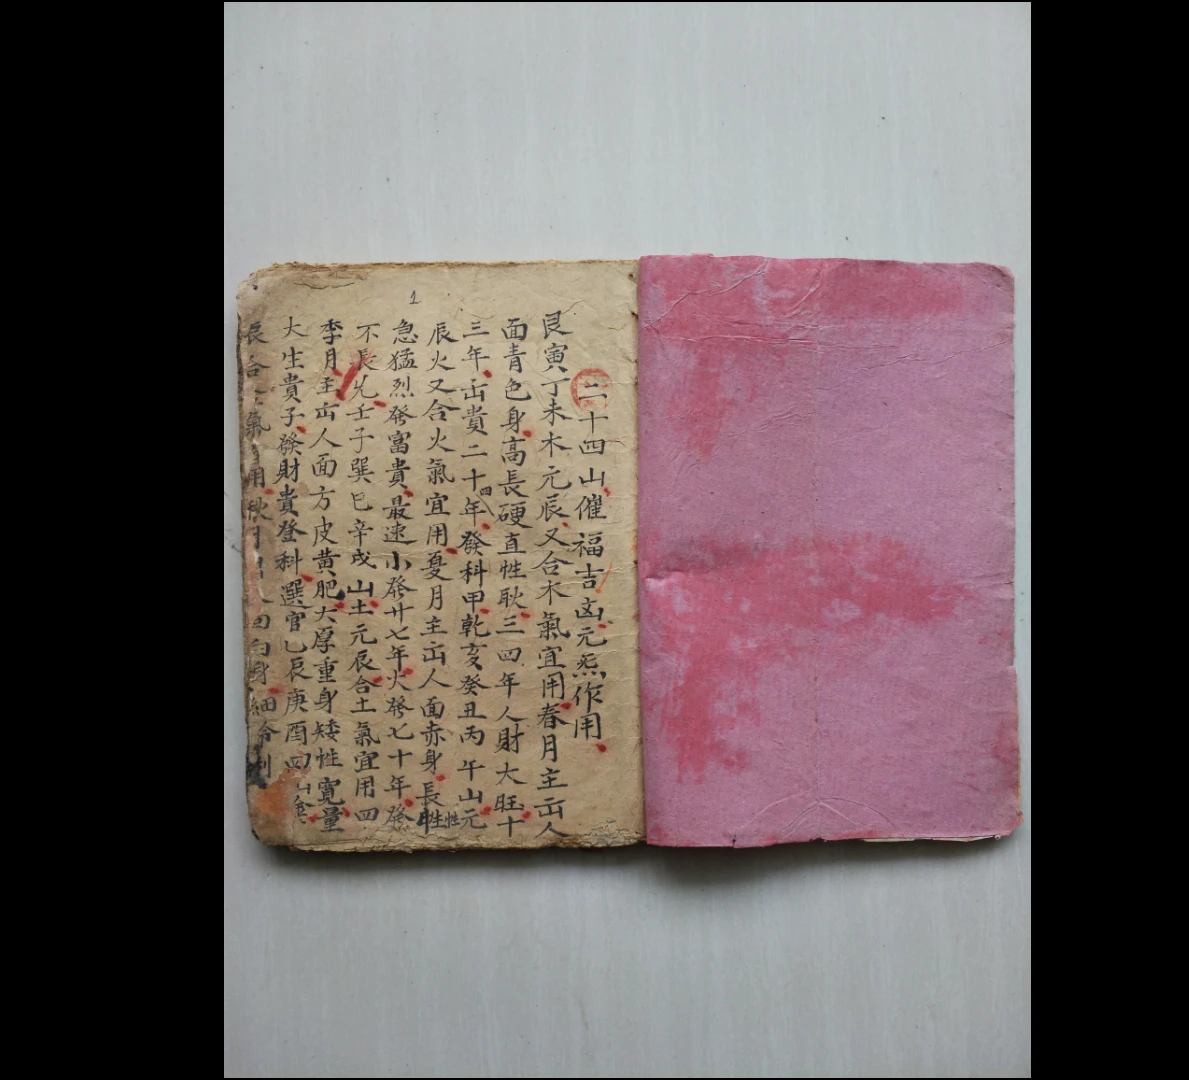 1
二十四山催福吉凶元炁作用
艮寅丁未木元辰又合木氣宜用春月主出人
面青色身高長硬直性耿三四年人財大旺十
三年出貴二十四年發科甲乾亥癸丑丙午山元
辰火又合火氣宜用夏月主出人面赤身長性
急猛烈發富貴最速小發廿七年大發七十年發
不長兑壬子巽巳辛戌山土元辰合土氣宜用四
季月主出人面方皮黄肥大厚重身矮性寬量
大生貴子發財貴登科選官乙辰庚酉四山金
辰合 氣 用秋月 白身細